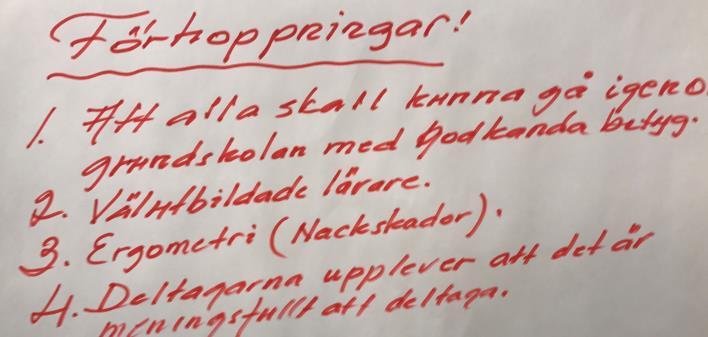 Förhoppningar!
1. Att alla skall kunna gå igeno
grundskolan med godkanda betyg.
2. Välutbildade lärare.
3. Ergometri (Nackskador).
4. Deltagarna upplever att det är
meningsfullt att deltaga.